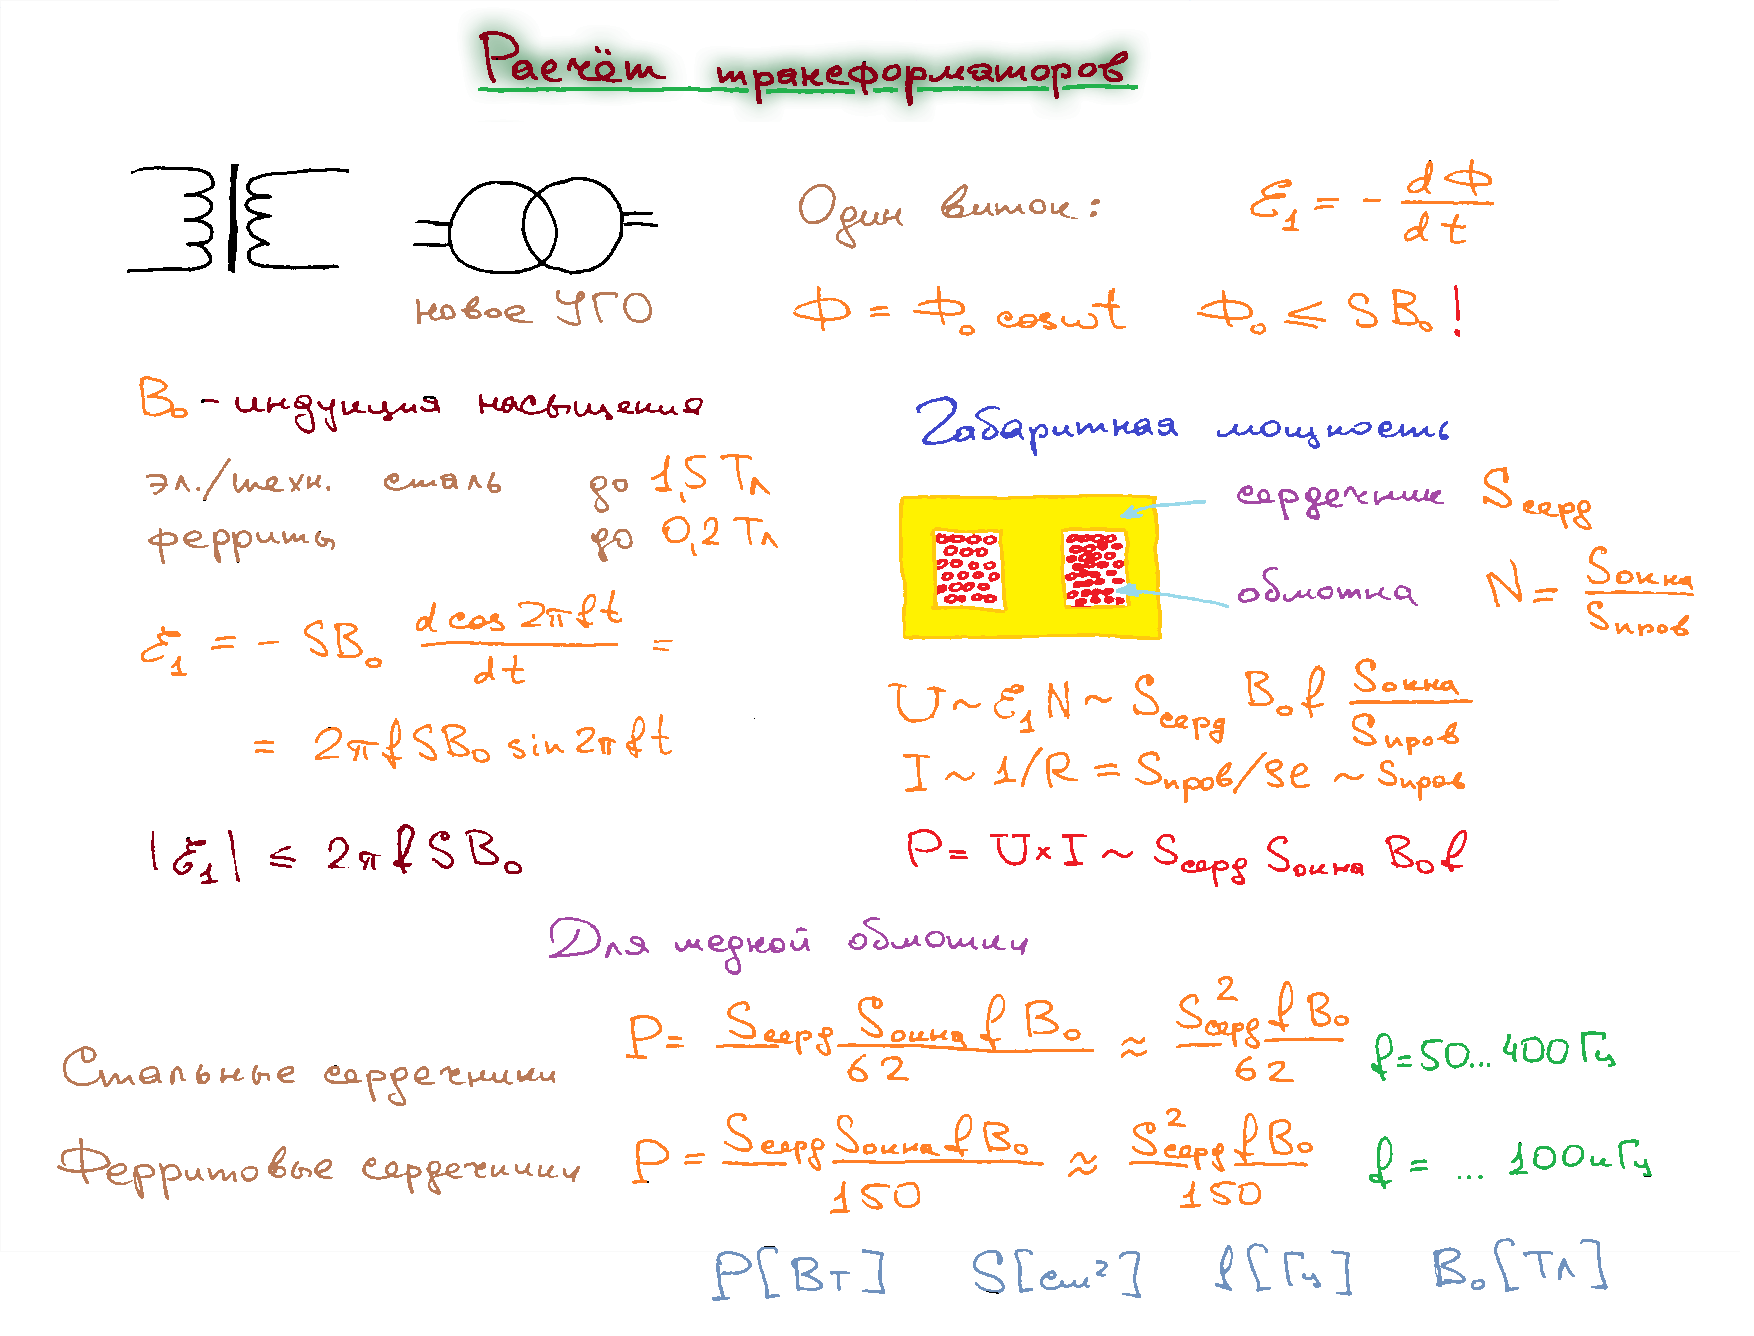 Расчёт трансформаторов
новое УГО
Один виток: ℰ₁ = - dФ/dt
Ф = Ф₀ cosωt Ф₀ ≤ SB₀!
B₀ - индукция насыщения
эл./техн. сталь до 1,5 Тл
ферриты до 0,2 Тл
ℰ₁ = - SB₀ d cos 2πft / dt =
= 2πfSB₀ sin 2πft
|ℰ₁| ≤ 2πfSB₀
Габаритная мощность
сердечник Sсерд
обмотка N = Sокна/Sпров
U ~ ℰ₁N ~ Sсерд B₀f Sокна/Sпров
I ~ 1/R = Sпров/ρℓ ~ Sпров
P = U×I ~ Sсерд Sокна B₀f
Для медной обмотки
Стальные сердечники P = Sсерд Sокна f B₀ / 62 ≈ S²серд f B₀ / 62 f=50...400Гц
Ферритовые сердечники P = Sсерд Sокна f B₀ / 150 ≈ S²серд f B₀ / 150 f = ... 100кГц
P[Вт] S[см²] f[Гц] B₀[Тл]